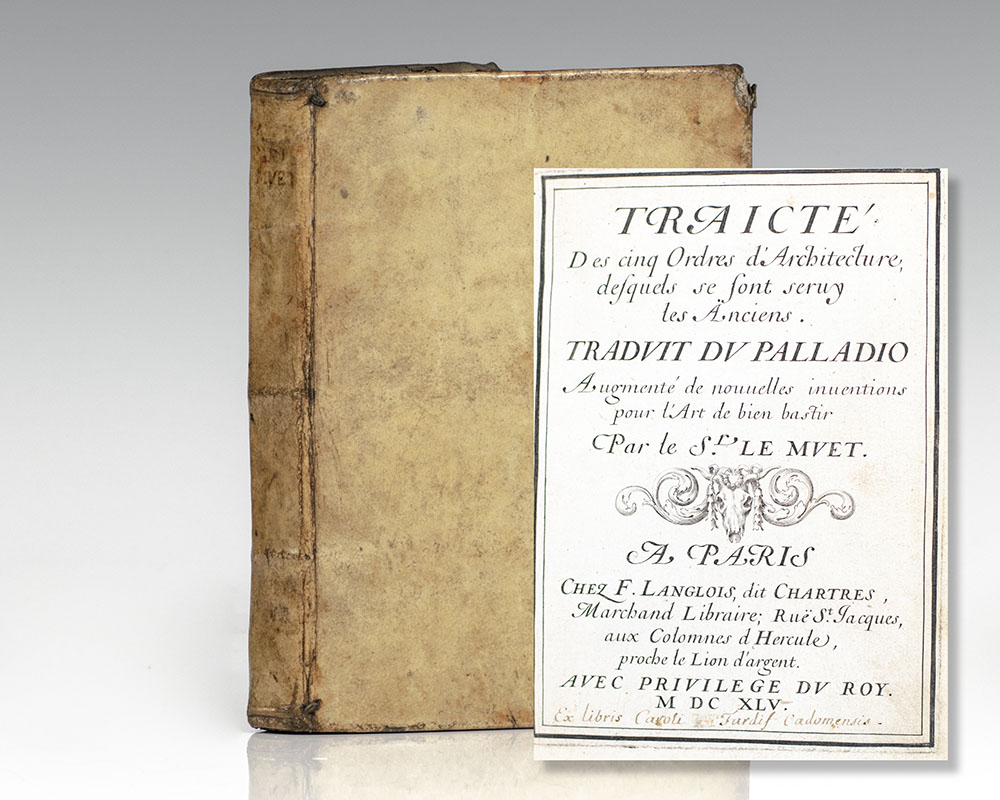 TRAICTÉ
Des cinq Ordres d'Architecture,
deſquels se ſont seruy
les Änciens.
TRADVIT DV PALLADIO
Augmenté de nouuelles inuentions
pour l'Art de bien bastir
Par le S.r LE MVET.
A PARIS
CHEZ F. LANGLOIS, dit CHARTRES,
Marchand Libraire; Ruë St. Jacques,
aux Colomnes d'Hercule,
proche le Lion d'argent.
AVEC PRIVILEGE DV ROY.
M DC XLV.
Ex libris Caroli Tardif Cadomensis.